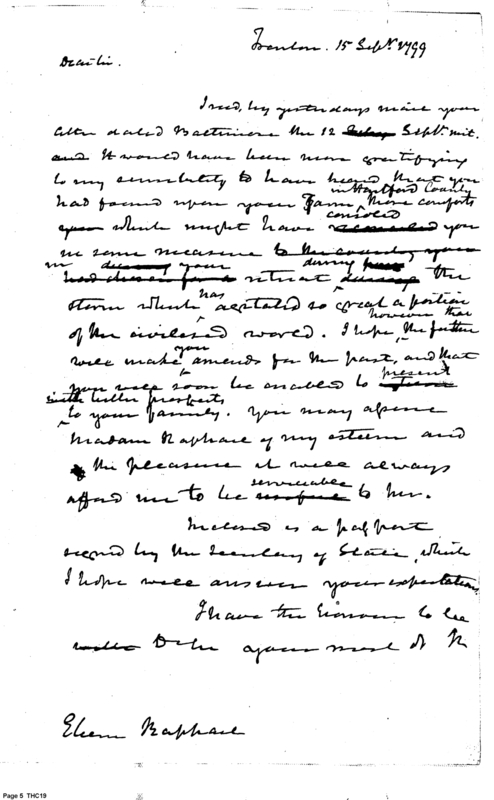 Trenton. 15 Sepr. 1799
Dear Sir.
I recd. by yesterdays mail your
letter dated Baltimore the 12 Sepr. inst.
and it would have been more gratifying
to my sensibility to have heard that you
in Hartford County
had found upon your Farm, those comforts
consoled
which might have you
in some measure to the country you
in your during
had chosen for a retreat during the
has
storm which agitated so great a portion
however that
of the civilised world. I hope, the future
you
will make amends for the past, and that
present
you will soon be enabled to
with better prospects
to your family. You may assure
Madam Raphael of my esteem and
the pleasure it will always
serviceable
afford me to be to her.
Inclosed is a passport
signed by the Secretary of State, which
I hope will answer your expectations
I have the honour to be
Dr Sir your most
Raphael
Page 5 THC19